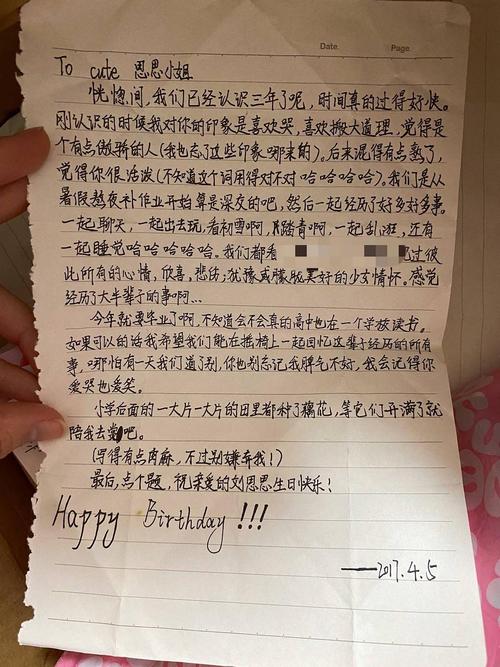 Date. Page.
To cute 思思小姐
恍惚间,我们已经认识三年了呢,时间真的过得好快。
刚认识的时候我对你的印象是喜欢哭,喜欢搬大道理,觉得是
个有点傲骄的人(我也忘了这些印象哪来的)。后来混得有点熟了,
觉得你很活泼(不知道这个词用得对不对哈哈哈哈哈)。我们是从
暑假熬夜补作业开始算是深交的吧,然后一起经历了好多好多事。
一起聊天,一起出去玩,看初雪啊,踏青啊,一起乱逛,还有
一起睡觉哈哈哈哈哈。我们都看 过彼
此所有的心情,欣喜,悲伤,犹豫或朦胧美好的少女情怀。感觉
经历了大半辈子的事啊...
今年就要毕业了啊,不知道会不会真的高中也在一个学校读书。
如果可以的话我希望我们能在摇椅上一起回忆这辈子经历的所有
事,哪怕有一天我们道了别,你也别忘记我脾气不好,我会记得你
爱哭也爱笑。
小学后面的一大片一大片的田里都种了藕花,等它们开满了就
陪我去赏吧。
(写得有点肉麻,不过别嫌弃我!)
最后,点个题,祝亲爱的刘思思生日快乐!
Happy Birthday!!!
——2017.4.5